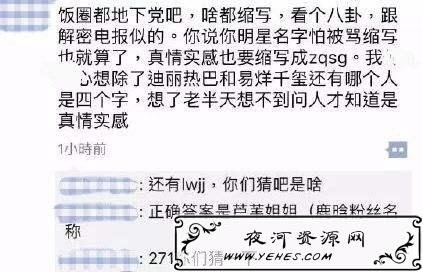 饭圈都地下党吧，啥都缩写，看个八卦，跟
解密电报似的。你说你明星名字怕被骂缩写
也就算了，真情实感也要缩写成zqsg。我
心想除了迪丽热巴和易烊千玺还有哪个人
是四个字，想了老半天想不到问人才知道是
真情实感
1小時前
：还有lwjj，你们猜吧是啥
：正确答案是芦苇姐姐（鹿晗粉丝名
称
：271
们猜
夜河资源网
WWW.YEHES.COM